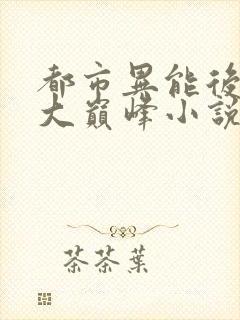 都市異能後
大巔峰小說
茶茶葉